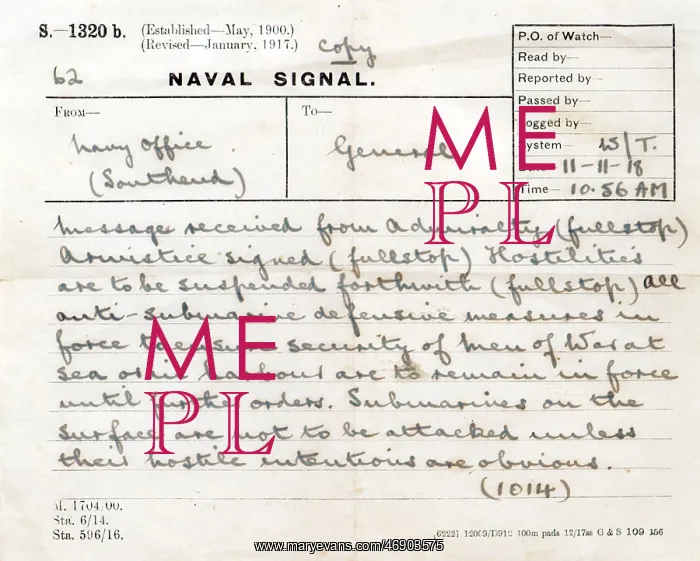 S.—1320 b. (Established—May, 1900.)
(Revised—January, 1917.)
Copy
62
NAVAL SIGNAL.
P.O. of Watch—
Read by—
Reported by—
Passed by—
ogged by—
ystem— W/T.
11-11-18
Time— 10.56 AM
FROM— TO—
Navy Office.
(Southend)
General
message received from Admiralty (fullstop)
Armistice signed (fullstop) Hostilities
are to be suspended forthwith (fullstop) all
anti-submarine defensive measures in
force to ensure security of Men of War at
sea or in harbour are to remain in force
until further orders. Submarines on the
surface are not to be attacked unless
their hostile intentions are obvious.
(1014)
M. 1704/00.
Sta. 6/14.
Sta. 596/16.
100m pads 12/17 G & S 109 156
ME
PL
ME
PL
www.maryevans.com/46903575